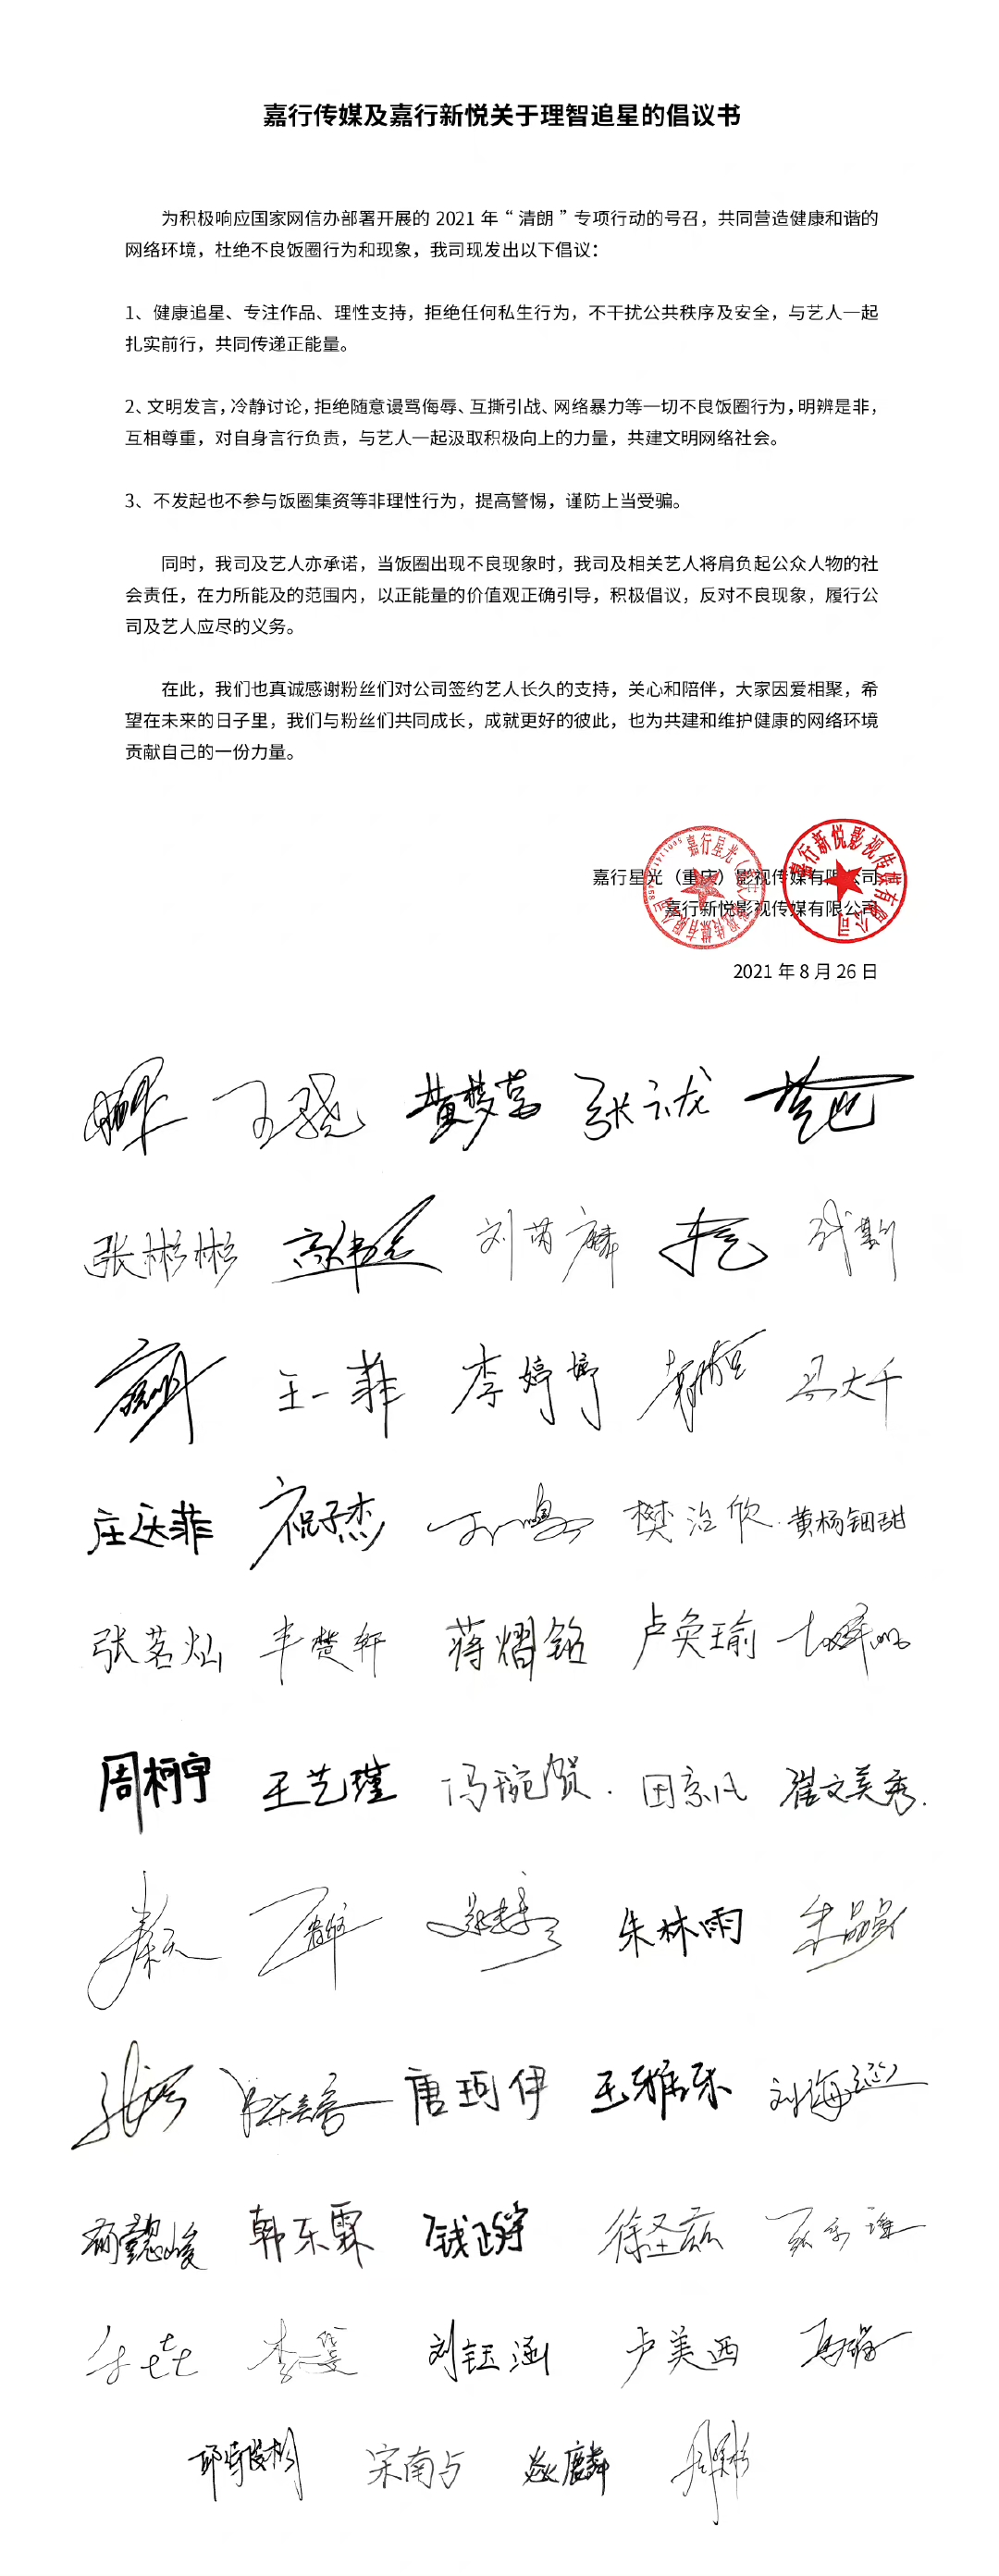 嘉行传媒及嘉行新悦关于理智追星的倡议书
为积极响应国家网信办部署开展的 2021 年“清朗”专项行动的号召，共同营造健康和谐的
网络环境，杜绝不良饭圈行为和现象，我司现发出以下倡议：
1、健康追星、专注作品、理性支持，拒绝任何私生行为，不干扰公共秩序及安全，与艺人一起
扎实前行，共同传递正能量。
2、文明发言，冷静讨论，拒绝随意谩骂侮辱、互撕引战、网络暴力等一切不良饭圈行为，明辨是非，
互相尊重，对自身言行负责，与艺人一起汲取积极向上的力量，共建文明网络社会。
3、不发起也不参与饭圈集资等非理性行为，提高警惕，谨防上当受骗。
同时，我司及艺人亦承诺，当饭圈出现不良现象时，我司及相关艺人将肩负起公众人物的社
会责任，在力所能及的范围内，以正能量的价值观正确引导，积极倡议，反对不良现象，履行公
司及艺人应尽的义务。
在此，我们也真诚感谢粉丝们对公司签约艺人长久的支持，关心和陪伴，大家因爱相聚，希
望在未来的日子里，我们与粉丝们共同成长，成就更好的彼此，也为共建和维护健康的网络环境
贡献自己的一份力量。
嘉行星光（重庆）影视传媒有限公司
嘉行新悦影视传媒有限公司
嘉行星光（重庆）影视传媒有限公司
嘉行新悦影视传媒有限公司
2021 年 8 月 26 日
王晓 黄梦莹 张云龙
张彬彬 高伟光 刘芮麟
王一菲 李婷婷 马大千
庄达菲 祝子杰 樊治欣 黄杨钿甜
张茗灿 丰楚轩 蒋熠铭 卢奂瑜
周柯宇 王艺瑾 冯琬贺 田京凡 翟文美秀
娄 朱林雨 朱品
唐珂伊 王雅乐 刘海
韩东霖 钱正 徐圣兹
李 刘钰涵 卢美西
宋南占 焱麟